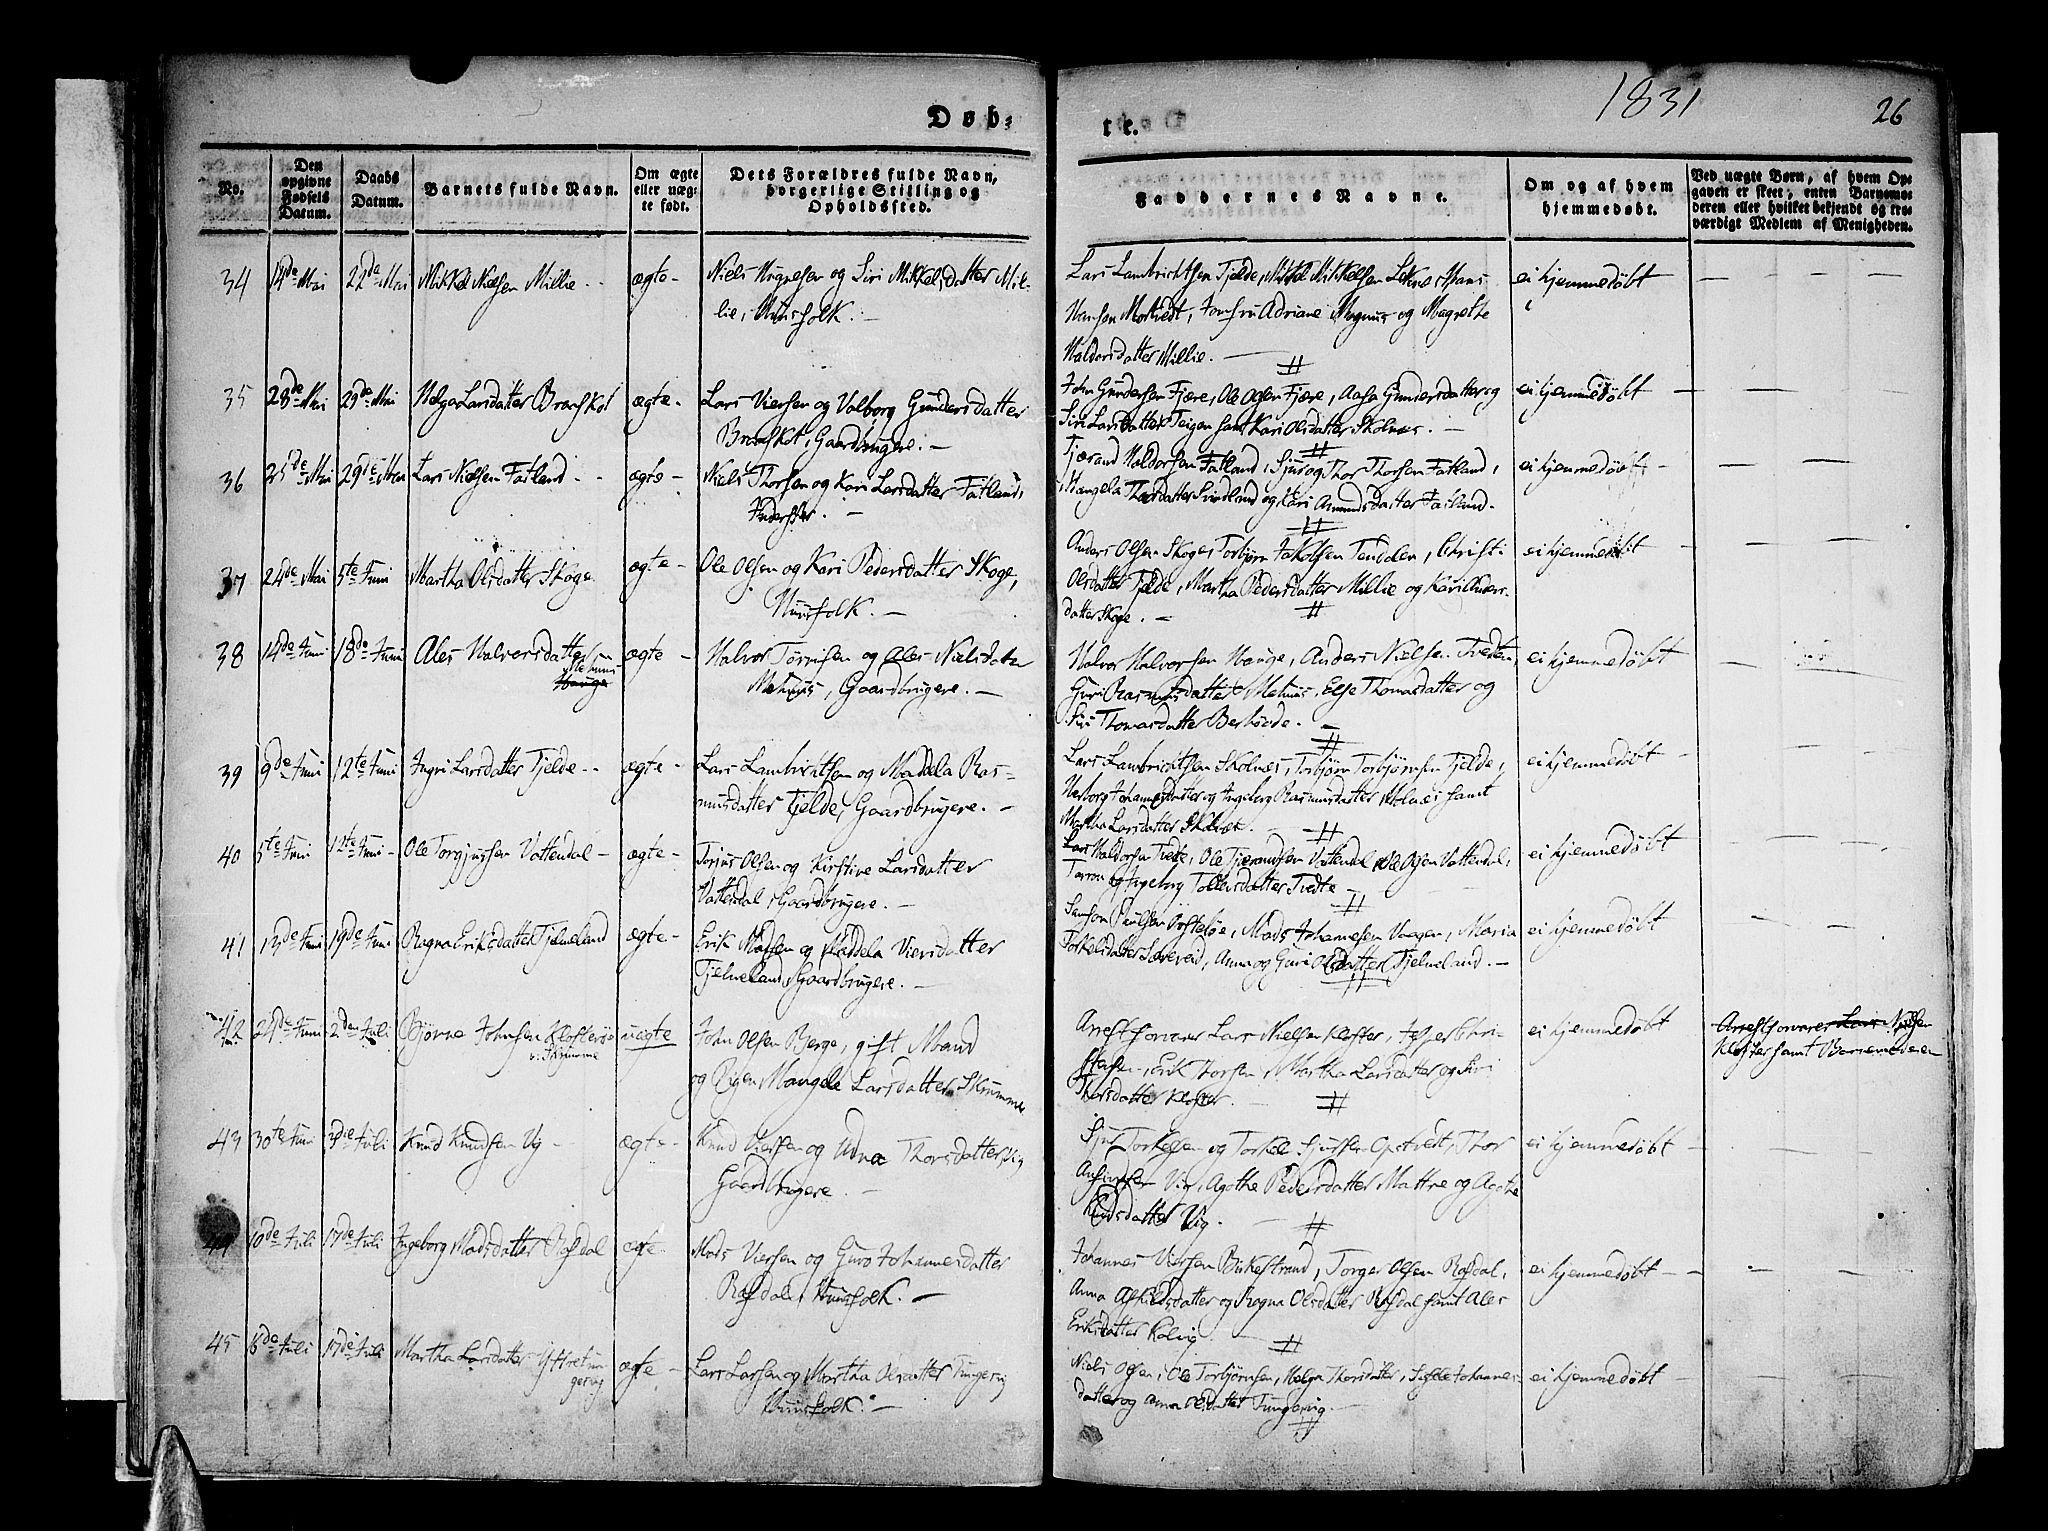 Døb-
te.
1831
26
No.
Den opgivne Fødsels Datum.
Daabs Datum.
Barnets fulde Navn.
Om ægte eller uægte født.
Dets Forældres fulde Navn, borgerlige Stilling og Opholdssted.
Faddernes Navne.
Om og af hvem hjemmedøbt.
Ved uægte Børn, af hvem Opgaven er skeet, enten Barnemoderen eller hvilket bekjendt og troværdigt Medlem af Menigheden.
34 14de Mai 22de Mai Mikkel Nielsen Millie ægte
Niels og Siri Mikkelsdatter Millie, Huusfolk.
Lars Lambrichtsen Tjelde, Mikkel Mikkelsen Hans
Hansen Jomfru Adriane Magnus og Magrethe
Haldorsdatter Millie.
ei hjemmedøbt
35 28de Mai 29de Mai Helga Larsdatter ægte
Lars Viersen og Valborg Gundersdatter
Gaardbrugere.
John Gundersen Fjære, Ole Olsen Fjære, Aasa Gundersdatter og
Siri Larsdatter Teigen samt Kari Olsdatter Skolnes.
ei hjemmedøbt
36 25de Mai 29de Mai Lars Nielsen Fatland ægte
Niels Thorsen og Kari Larsdatter Fatland,
Tjærand Haldorsen Fatland, Sjur og Thor Thorsen Fatland,
Mangela Thorsdatter Svindland og Kari Amundsdatter Fatland.
ei hjemmedøbt
37 24de Mai 5te Juni Martha Olsdatter Skoge ægte
Ole Olsen og Kari Pedersdatter Skoge,
Huusfolk.
Anders Olsen Skoge, Torbjørn Jakobsen Tendalen, Christi
Olsdatter Tjelde, Martha Pedersdatter Millie og Kari
datter Skoge.
ei hjemmedøbt
38 14de Juni 18de Juni Ales Halvorsdatter ægte
Halvor og Ales Nielsdatter
Gaardbrugere.
Halvor Halvorsen Hauge, Anders Nielsen Tvedten,
Guri Rasmusdatter Else Thomasdatter og
Siri Thomasdatter
ei hjemmedøbt
39 9de Juni 12te Juni Ingri Larsdatter Tjelde ægte
Lars Lambrichtsen og Maddela Ras-
musdatter Tjelde, Gaardbrugere.
Lars Lambrichtsen Skolnes, Torbjørn Torbjørnsen Tjelde,
Johannesdatter og Ingeborg Rasmusdatter samt
Martha Larsdatter
ei hjemmedøbt
40 5te Juni 12te Juni Ole Torgjussen Vattendal ægte
Torjus Olsen og Kirstine Larsdatter
Vattendal, Gaardbrugere.
Lars Haldorsen Tvedte, Ole Tjerandsen Vattendal, Ole Olsen Vattendal,
og Ingeborg Tollevsdatter Tvedte
ei hjemmedøbt
41 13de Juni 19de Juni Ragna Eriksdatter Tjelmeland ægte
Erik Madsen og Maddela Viersdatter
Tjelmeland, Gaardbrugere.
Samson Poulsen Mads Johannesen Vaagen, Maria
Torkelsdatter Anna og Guri Olsdatter Tjelmeland.
ei hjemmedøbt
42 24de Juni 2den Juli Bjørne Johnsen Klosterøe
v. Skrumme
uægte
John Olsen Berge, gift Mand
og Pigen Mangele Larsdatter Skrumme
Arrestforvarer Lars Nielsen Kloster, Jesper Chri-
stensen, Erik Thorsen, Martha Larsdatter og Siri
Thorsdatter Kloster.
ei hjemmedøbt
Arrestforvarer Lars Nielsen
Kloster samt Barnemoderen
43 30te Juni 3die Juli Knud Knudsen Vig ægte
Knud Viersen og Udna Thorsdatter Vig
Gaardbrugere.
Sjur Torkelsen og Torkel Sjursen Opstvedt, Thor
Vig, Agothe Pedersdatter Mattre og Agothe
Knudsdatter Vig.
ei hjemmedøbt
44 10de Juli 17de Juli Ingeborg Madsdatter Rafdal ægte
Mads Viersen og Guro Johannesdatter
Rafdal, Huusfolk.
Johannes Viersen Birkestrand, Torger Olsen Rafdal,
Anna og Ragna Olsdatter Rafdal samt Ales
Eriksdatter Kolvig
ei hjemmedøbt
45 16de Juli 17de Juli Martha Larsdatter ægte
Lars Larsen og Martha Olsdatter Tungesvig
Huusfolk.
Niels Olsen, Ole Torbjørnsen, Helga Thorsdatter, Johannes-
datter og Anna Olsdatter Tungesvig.
ei hjemmedøbt